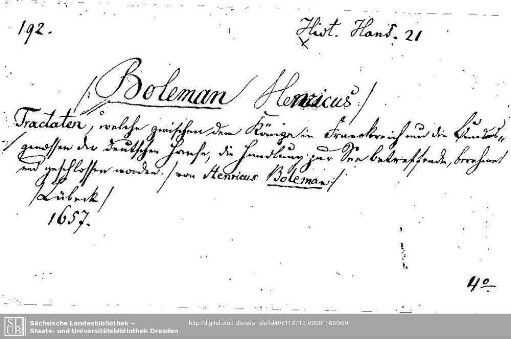 192.
Hist. Hand. 21
/: Boleman Henricus :/
Tractaten, welche zwischen dem Könige in Frankreich und die Bundes-
genossen der deutschen Hanse, die Handlung zur See betreffende, berahmet
und geschlossen worden. /: von Henricus Boleman :/
/ Lübeck /
1657.
4°
SLUB
Sächsische Landesbibliothek –
Staats- und Universitätsbibliothek Dresden